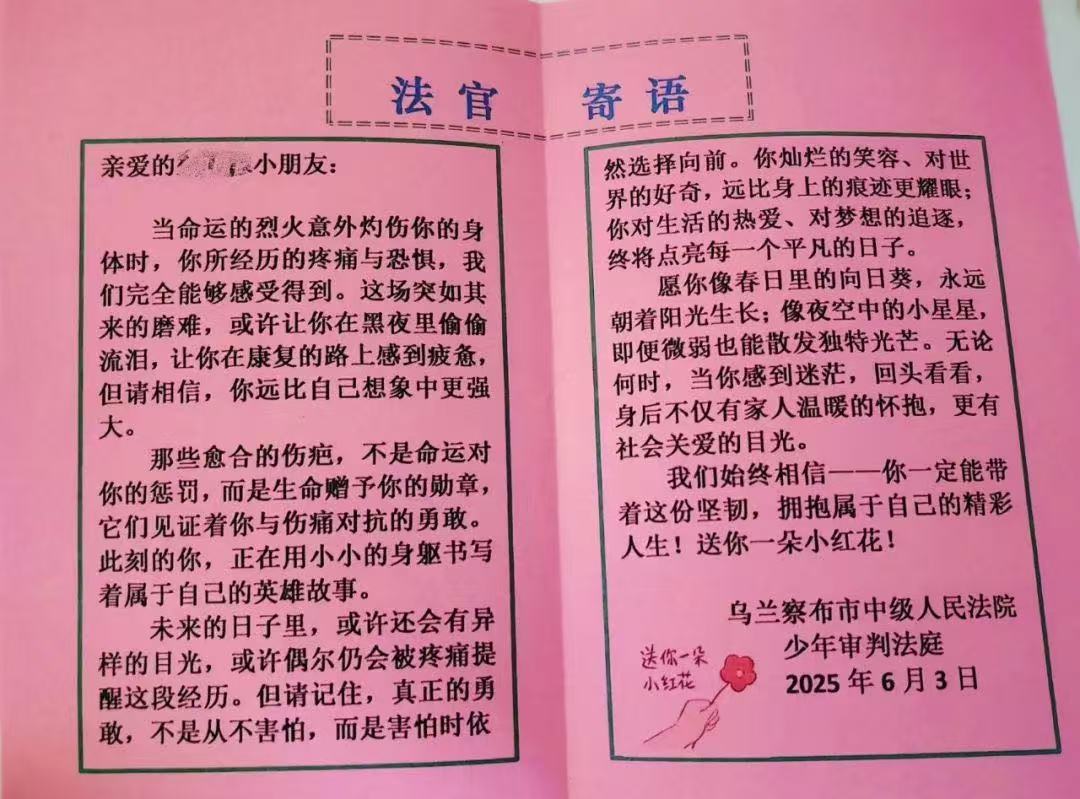 法官 寄语
亲爱的 小朋友：
当命运的烈火意外灼伤你的身
体时，你所经历的疼痛与恐惧，我
们完全能够感受得到。这场突如其
来的磨难，或许让你在黑夜里偷偷
流泪，让你在康复的路上感到疲惫，
但请相信，你远比自己想象中更强
大。
那些愈合的伤疤，不是命运对
你的惩罚，而是生命赠予你的勋章，
它们见证着你与伤痛对抗的勇敢。
此刻的你，正在用小小的身躯书写
着属于自己的英雄故事。
未来的日子里，或许还会有异
样的目光，或许偶尔仍会被疼痛提
醒这段经历。但请记住，真正的勇
敢，不是从不害怕，而是害怕时依
然选择向前。你灿烂的笑容、对世
界的好奇，远比身上的痕迹更耀眼；
你对生活的热爱、对梦想的追逐，
终将点亮每一个平凡的日子。
愿你像春日里的向日葵，永远
朝着阳光生长；像夜空中的小星星，
即便微弱也能散发独特光芒。无论
何时，当你感到迷茫，回头看看，
身后不仅有家人温暖的怀抱，更有
社会关爱的目光。
我们始终相信——你一定能带
着这份坚韧，拥抱属于自己的精彩
人生！送你一朵小红花！
乌兰察布市中级人民法院
少年审判法庭
2025年6月3日
送你一朵
小红花